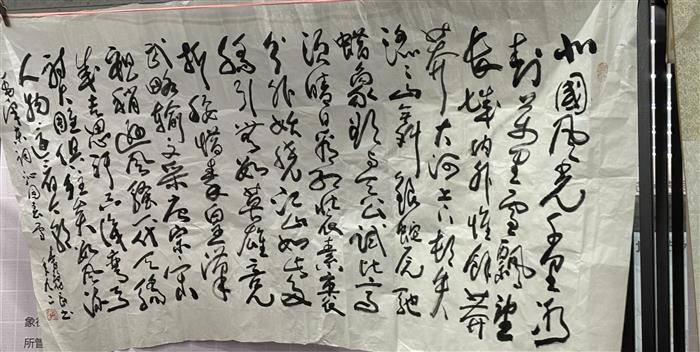 北國风光千里冰
封萬里雪飄望
長城内外惟餘莽
莽大河上下頓失
滔滔山舞銀蛇原馳
蜡象欲与天公試比高
須晴日看紅装素裹
分外妖嬈江山如此多
嬌引無数英雄競
折腰惜秦皇漢
武略输文采唐宗宋
祖稍遜风騷一代天驕
成吉思汗只識彎弓
射大雕俱往矣数风流
人物还看今朝
毛澤東詞沁园春雪
象
所